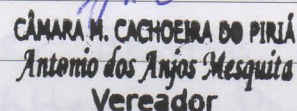 CÂMARA M. CACHOEIRA DO PIRIÁ
Antonio dos Anjos Mesquita
Vereador